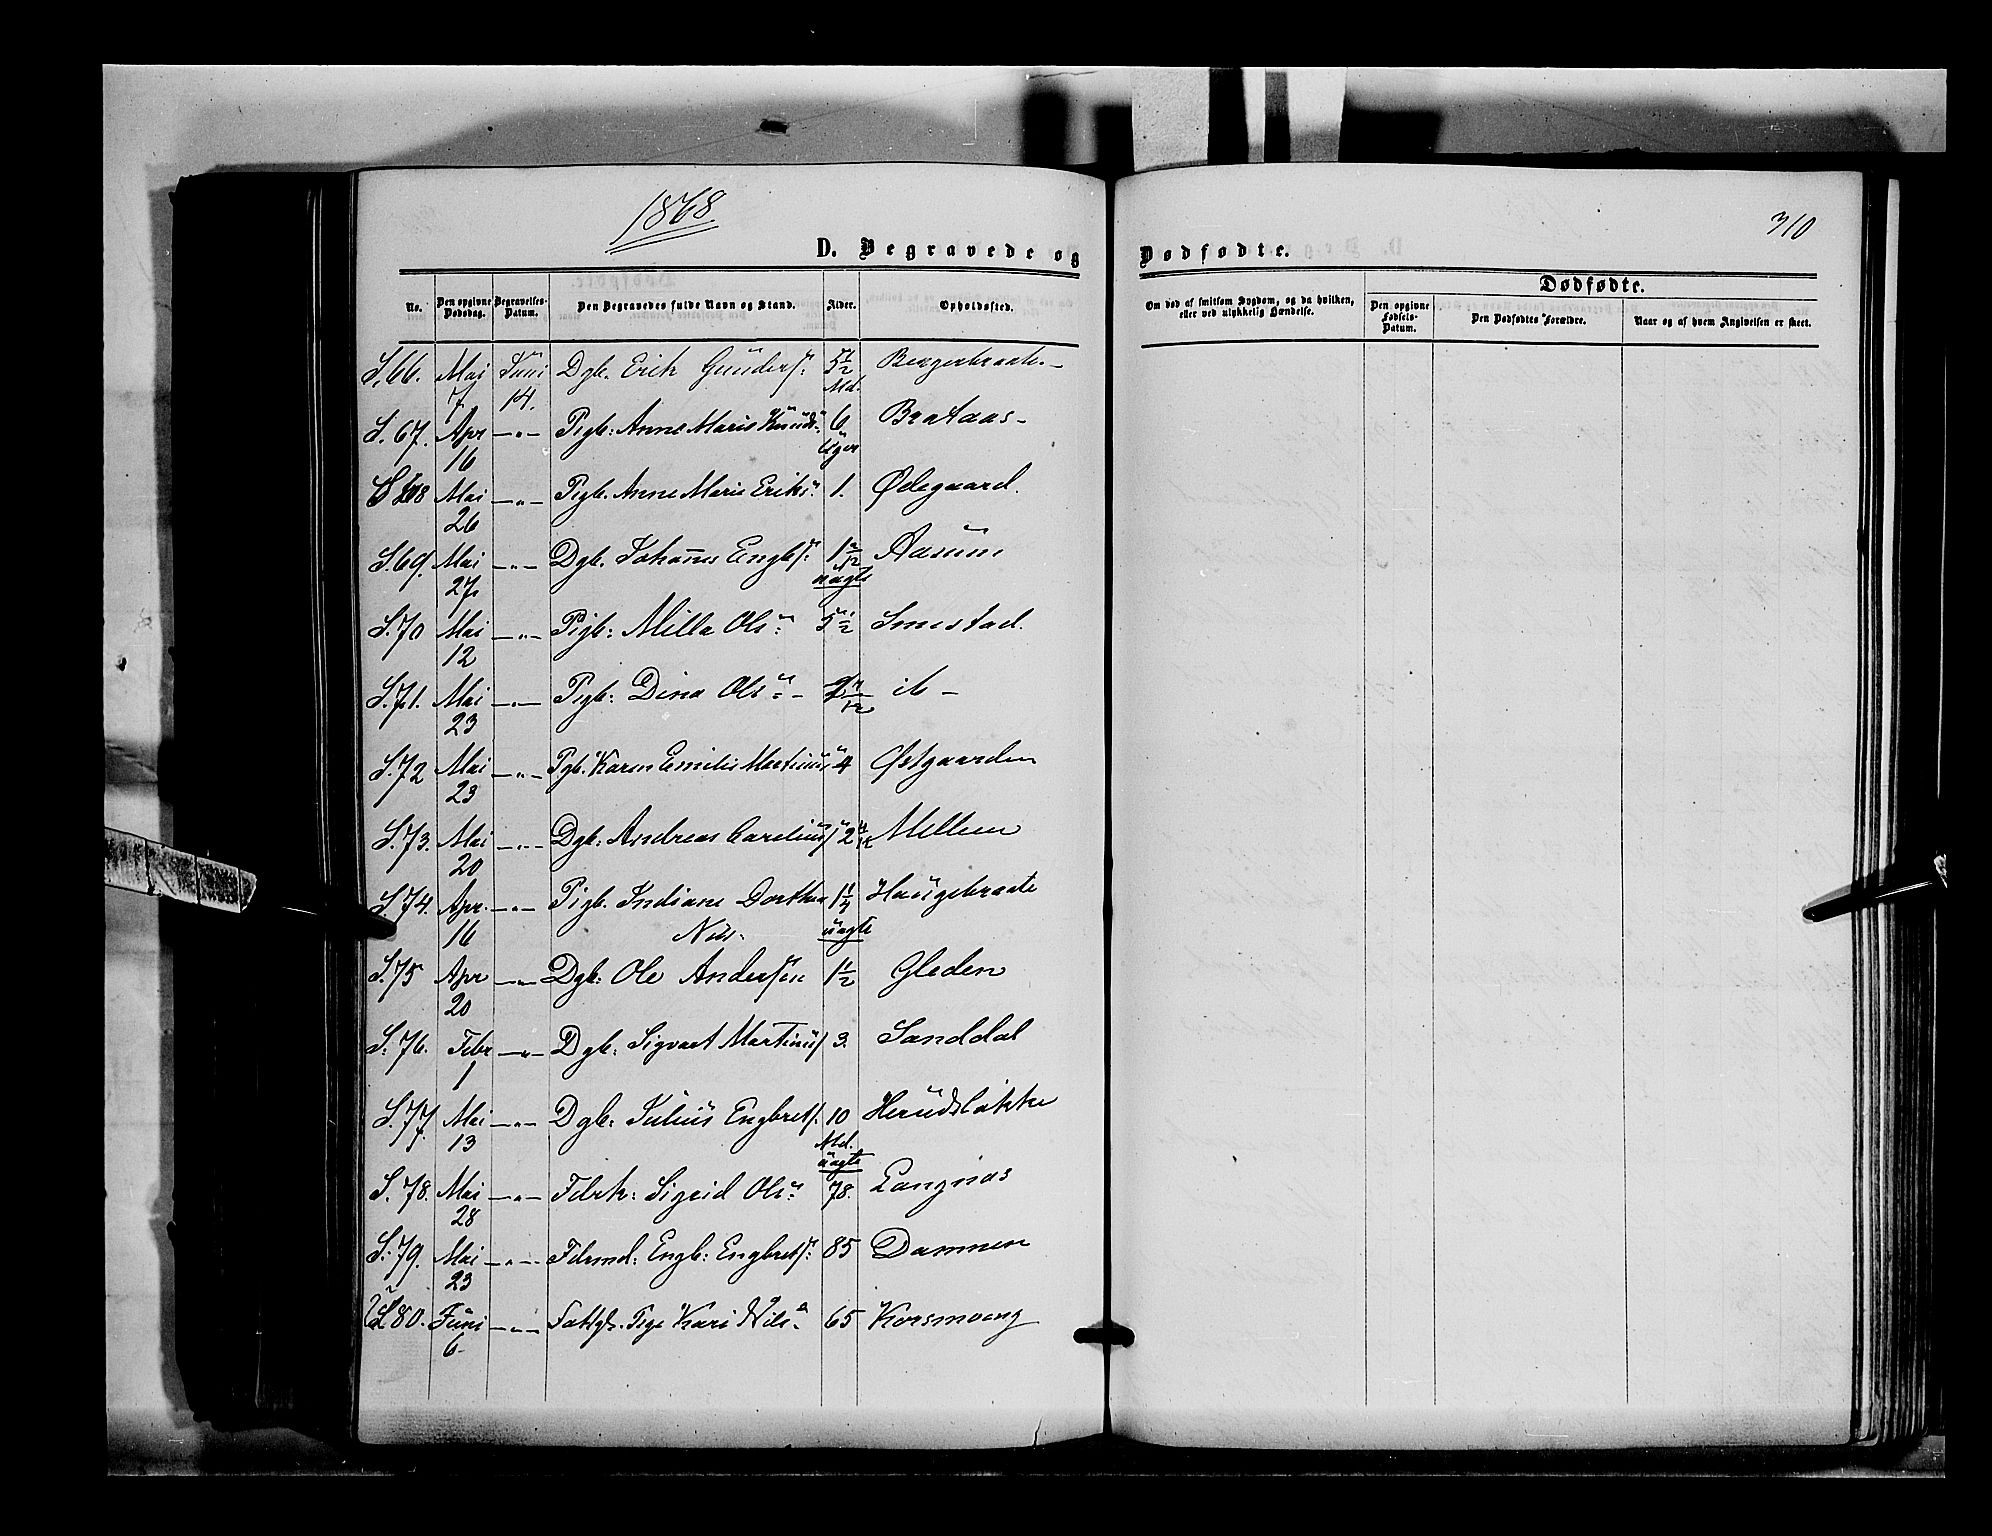 1868
310
D. Begravede og Dødfødte.
Dødfødte.
No. Den opgivne Dødsdag. Begravelses-Datum. Den Begravedes fulde Navn og Stand. Alder. Opholdssted. Om død af smitsom Sygdom, og da hvilken, eller ved ulykkelig Hændelse. Den opgivne Fødsels-Datum. Den Dødfødtes Forældre. Naar og af hvem Angivelsen er skeet.
S. 66. Mai 7 Juni 14. Dgb. Erik Gunders. 5 1/2 Md. Bergerbraate.
S. 67. Apr 16 —"— Pigb: Anne Marie Knuds. 6 Uger Brataas
S 68 Mai 26 —"— Pigb. Anne Marie Eriks. 1. Ødegaard.
S. 69. Mai 27 —"— Dgb. Johannes Engbs. 1 2/12 uægte Aasum
S. 70 Mai 12 —"— Pigb: Milla Ols: 5 1/2 Smestad.
S. 71. Mai 23 —"— Pigb: Dina Ols: 2 /12 ib
S. 72 Mai 23 —"— Pgb. Karen Emilie Martinus 4 Østgaarden
S. 73. Mai 20 —"— Dgb: Andreas Carelius 2 /12 Millum
S. 74. Apr. 16 —"— Pigb. Indiane Dorthea 1 1/4 Haugebraate
Nils: uægte
S. 75 Apr 20 —"— Dgb: Ole Andersen 1 1/2 Gleden
S: 76. Febr 1 —"— Dgb: Sigvart Martinus 3. Sanddal
S. 77. Mai 13 —"— Dgb: Julius Engbrets. 10 Md. uægte Herudsløkke
S. 78. Mai 28 —"— Fdrk: Sigrid Ols: 78. Langnas
S: 79. Mai 23 —"— Fdrmd: Engb: Engbrets: 85 Dammen
S 80. Juni 6 —"— Fattgl. Pige Kari Nils: 65 Korsmoeng